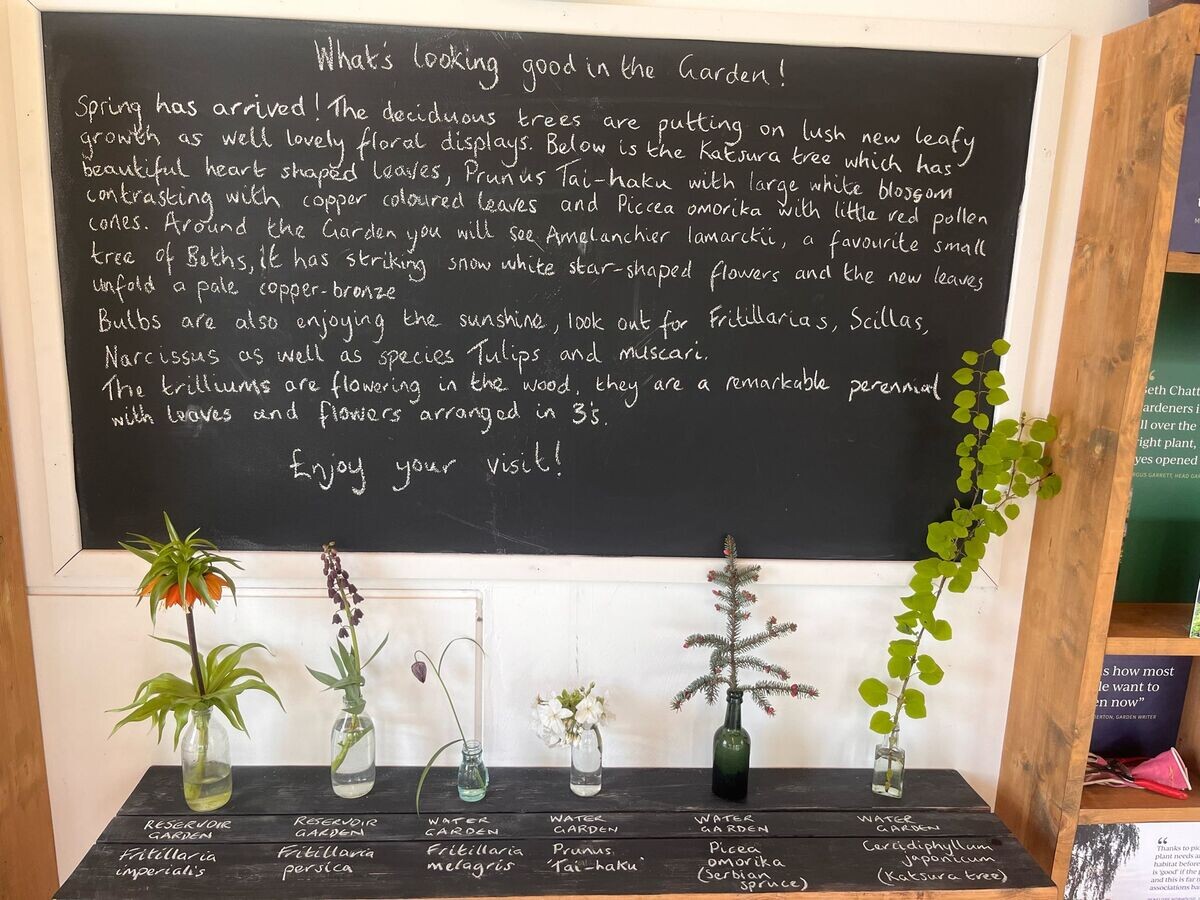 What's looking good in the Garden!
Spring has arrived! The deciduous trees are putting on lush new leafy
growth as well lovely floral displays. Below is the Katsura tree which has
beautiful heart shaped leaves, Prunus Tai-haku with large white blossom
contrasting with copper coloured leaves and Piccea omorika with little red pollen
cones. Around the Garden you will see Amelanchier lamarckii, a favourite small
tree of Beths, it has striking snow white star-shaped flowers and the new leaves
unfold a pale copper-bronze
Bulbs are also enjoying the sunshine, look out for Fritillarias, Scillas,
Narcissus as well as species Tulips and muscari.
The trilliums are flowering in the wood, they are a remarkable perennial
with leaves and flowers arranged in 3's.
Enjoy your visit!
RESERVOIR
GARDEN
Fritillaria
imperialis
RESERVOIR
GARDEN
Fritillaria
persica
WATER
GARDEN
Fritillaria
melagris
WATER
GARDEN
Prunus
'Tai-haku'
WATER
GARDEN
Picea
omorika
(Serbian
spruce)
WATER
GARDEN
Cercidiphyllum
japonicum
(Katsura tree)
“
Beth Chatt
ardeners i
ll over the
right plant,
yes opened
s how most
le want to
en now”
ERTON, GARDEN WRITER
“
Thanks to pio
plant needs a
habitat before
is 'good' if the p
and this is far m
associations ba